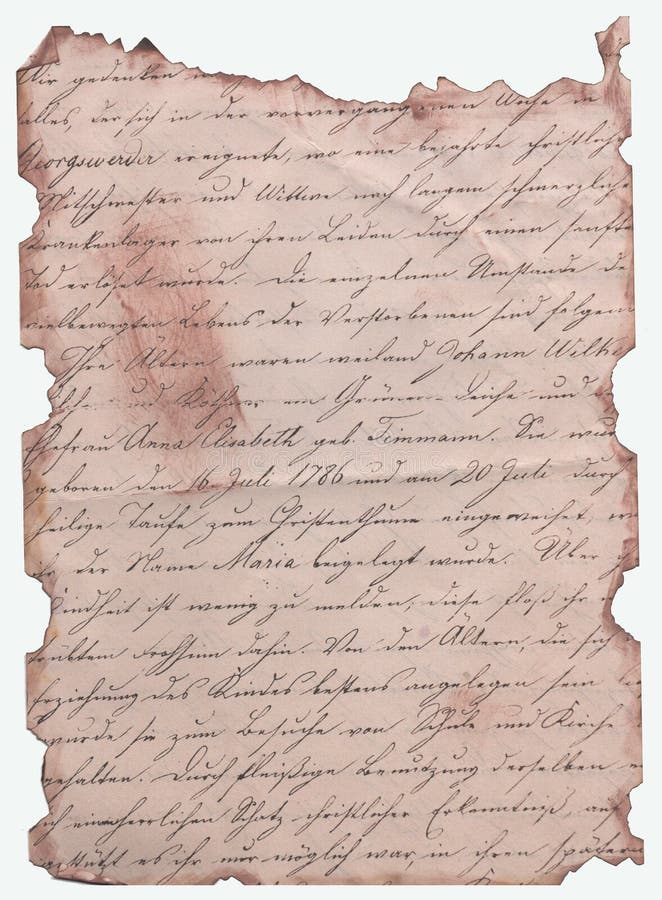 Wir gedenken
alles, der sich in der vorvergangenen Woche in
Georgswerder ereignete, wo eine bejahrte christliche
Mitschwester und Wittwe nach langem schmerzliche
Krankenlager von ihren Leiden durch einen sanfte
Tod erlöset wurde. Die einzelnen Umstände de
vielbewegten Lebens der Verstorbenen sind folgen
Ihre Ältern waren weiland Johann Wilh
und Köthner am Grünen Deiche und
Ehefrau Anna Elisabeth geb. Timmann. Sie wur
geboren den 16. Juli 1786 und am 20 Juli durch
heilige Taufe zum Christenthume eingeweihet, wo
ihr der Name Maria beigelegt wurde. Über
Kindheit ist wenig zu melden, diese floß ihr
trübtem Frohsinn dahin. Von den Ältern, die sich
Erziehung des Kindes bestens angelegen sein
wurde sie zum Besuche von Schule und Kirche
gehalten. Durch fleißige Benutzung derselben
ich einen herrlichen Schatz christlicher Erkenntniß, auf
gestützt es ihr nur möglich war, in ihren spätern